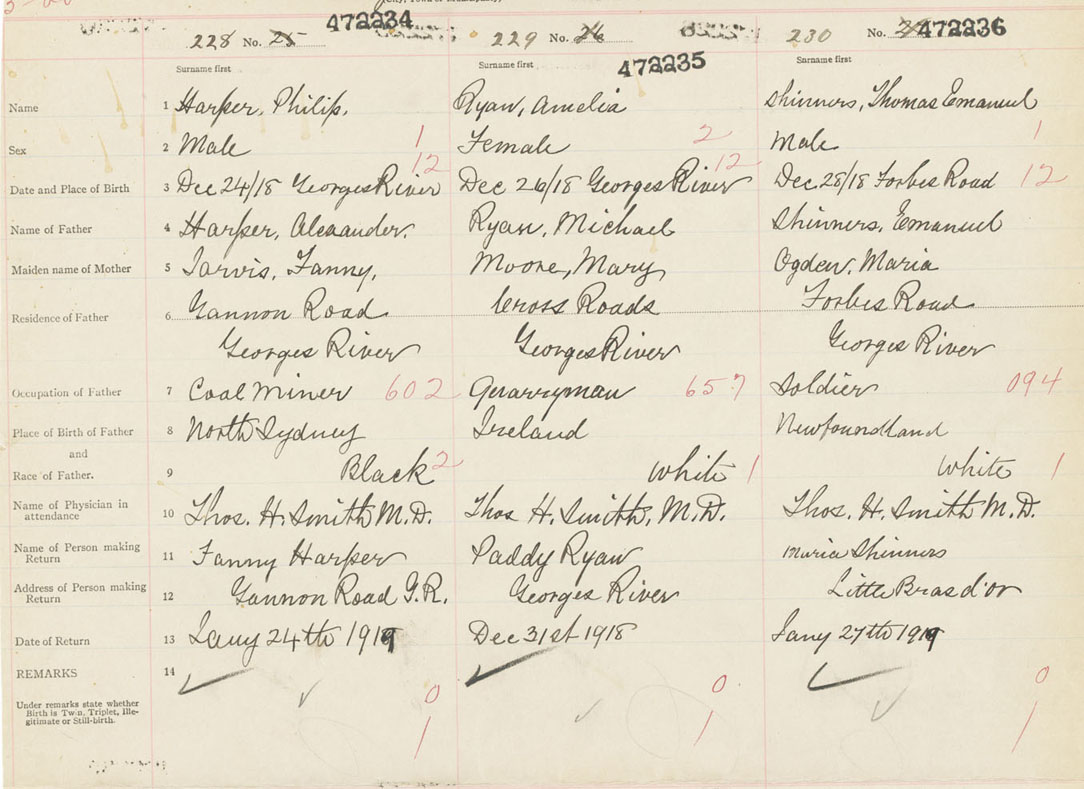 (City, Town or Municipality)
228 No. 25 472234 229 No. 26 472235 230 No. 472236
Surname first Surname first Surname first
Name 1 Harper, Philip. Ryan, Amelia Shinners, Thomas Emanuel
Sex 2 Male 1 Female 2 Male 1
Date and Place of Birth 3 Dec 24/18 Georges River 12 Dec 26/18 Georges River 12 Dec. 28/18 Forbes Road 12
Name of Father 4 Harper, Alexander. Ryan, Michael Shinners, Emanuel
Maiden name of Mother 5 Jarvis, Fanny, Moore, Mary Ogden, Maria
Residence of Father 6 Gannon Road Cross Roads Forbes Road
Georges River Georges River Georges River
Occupation of Father 7 Coal Miner 602 Quarryman 657 Soldier 094
Place of Birth of Father 8 North Sydney Ireland Newfoundland
and
Race of Father. 9 Black 2 White 1 White 1
Name of Physician in
attendance 10 Thos. H. Smith M.D. Thos H. Smith, M.D. Thos. H. Smith M.D.
Name of Person making
Return 11 Fanny Harper Paddy Ryan Maria Shinners
Address of Person making
Return 12 Gannon Road G.R. Georges River Little Bras d'or
Date of Return 13 Jany 24th 1919 Dec 31st 1918 Jany 27th 1919
REMARKS 14
Under remarks state whether
Birth is Twin, Triplet, Ille-
gitimate or Still-birth.
0 0 0
1 1 1